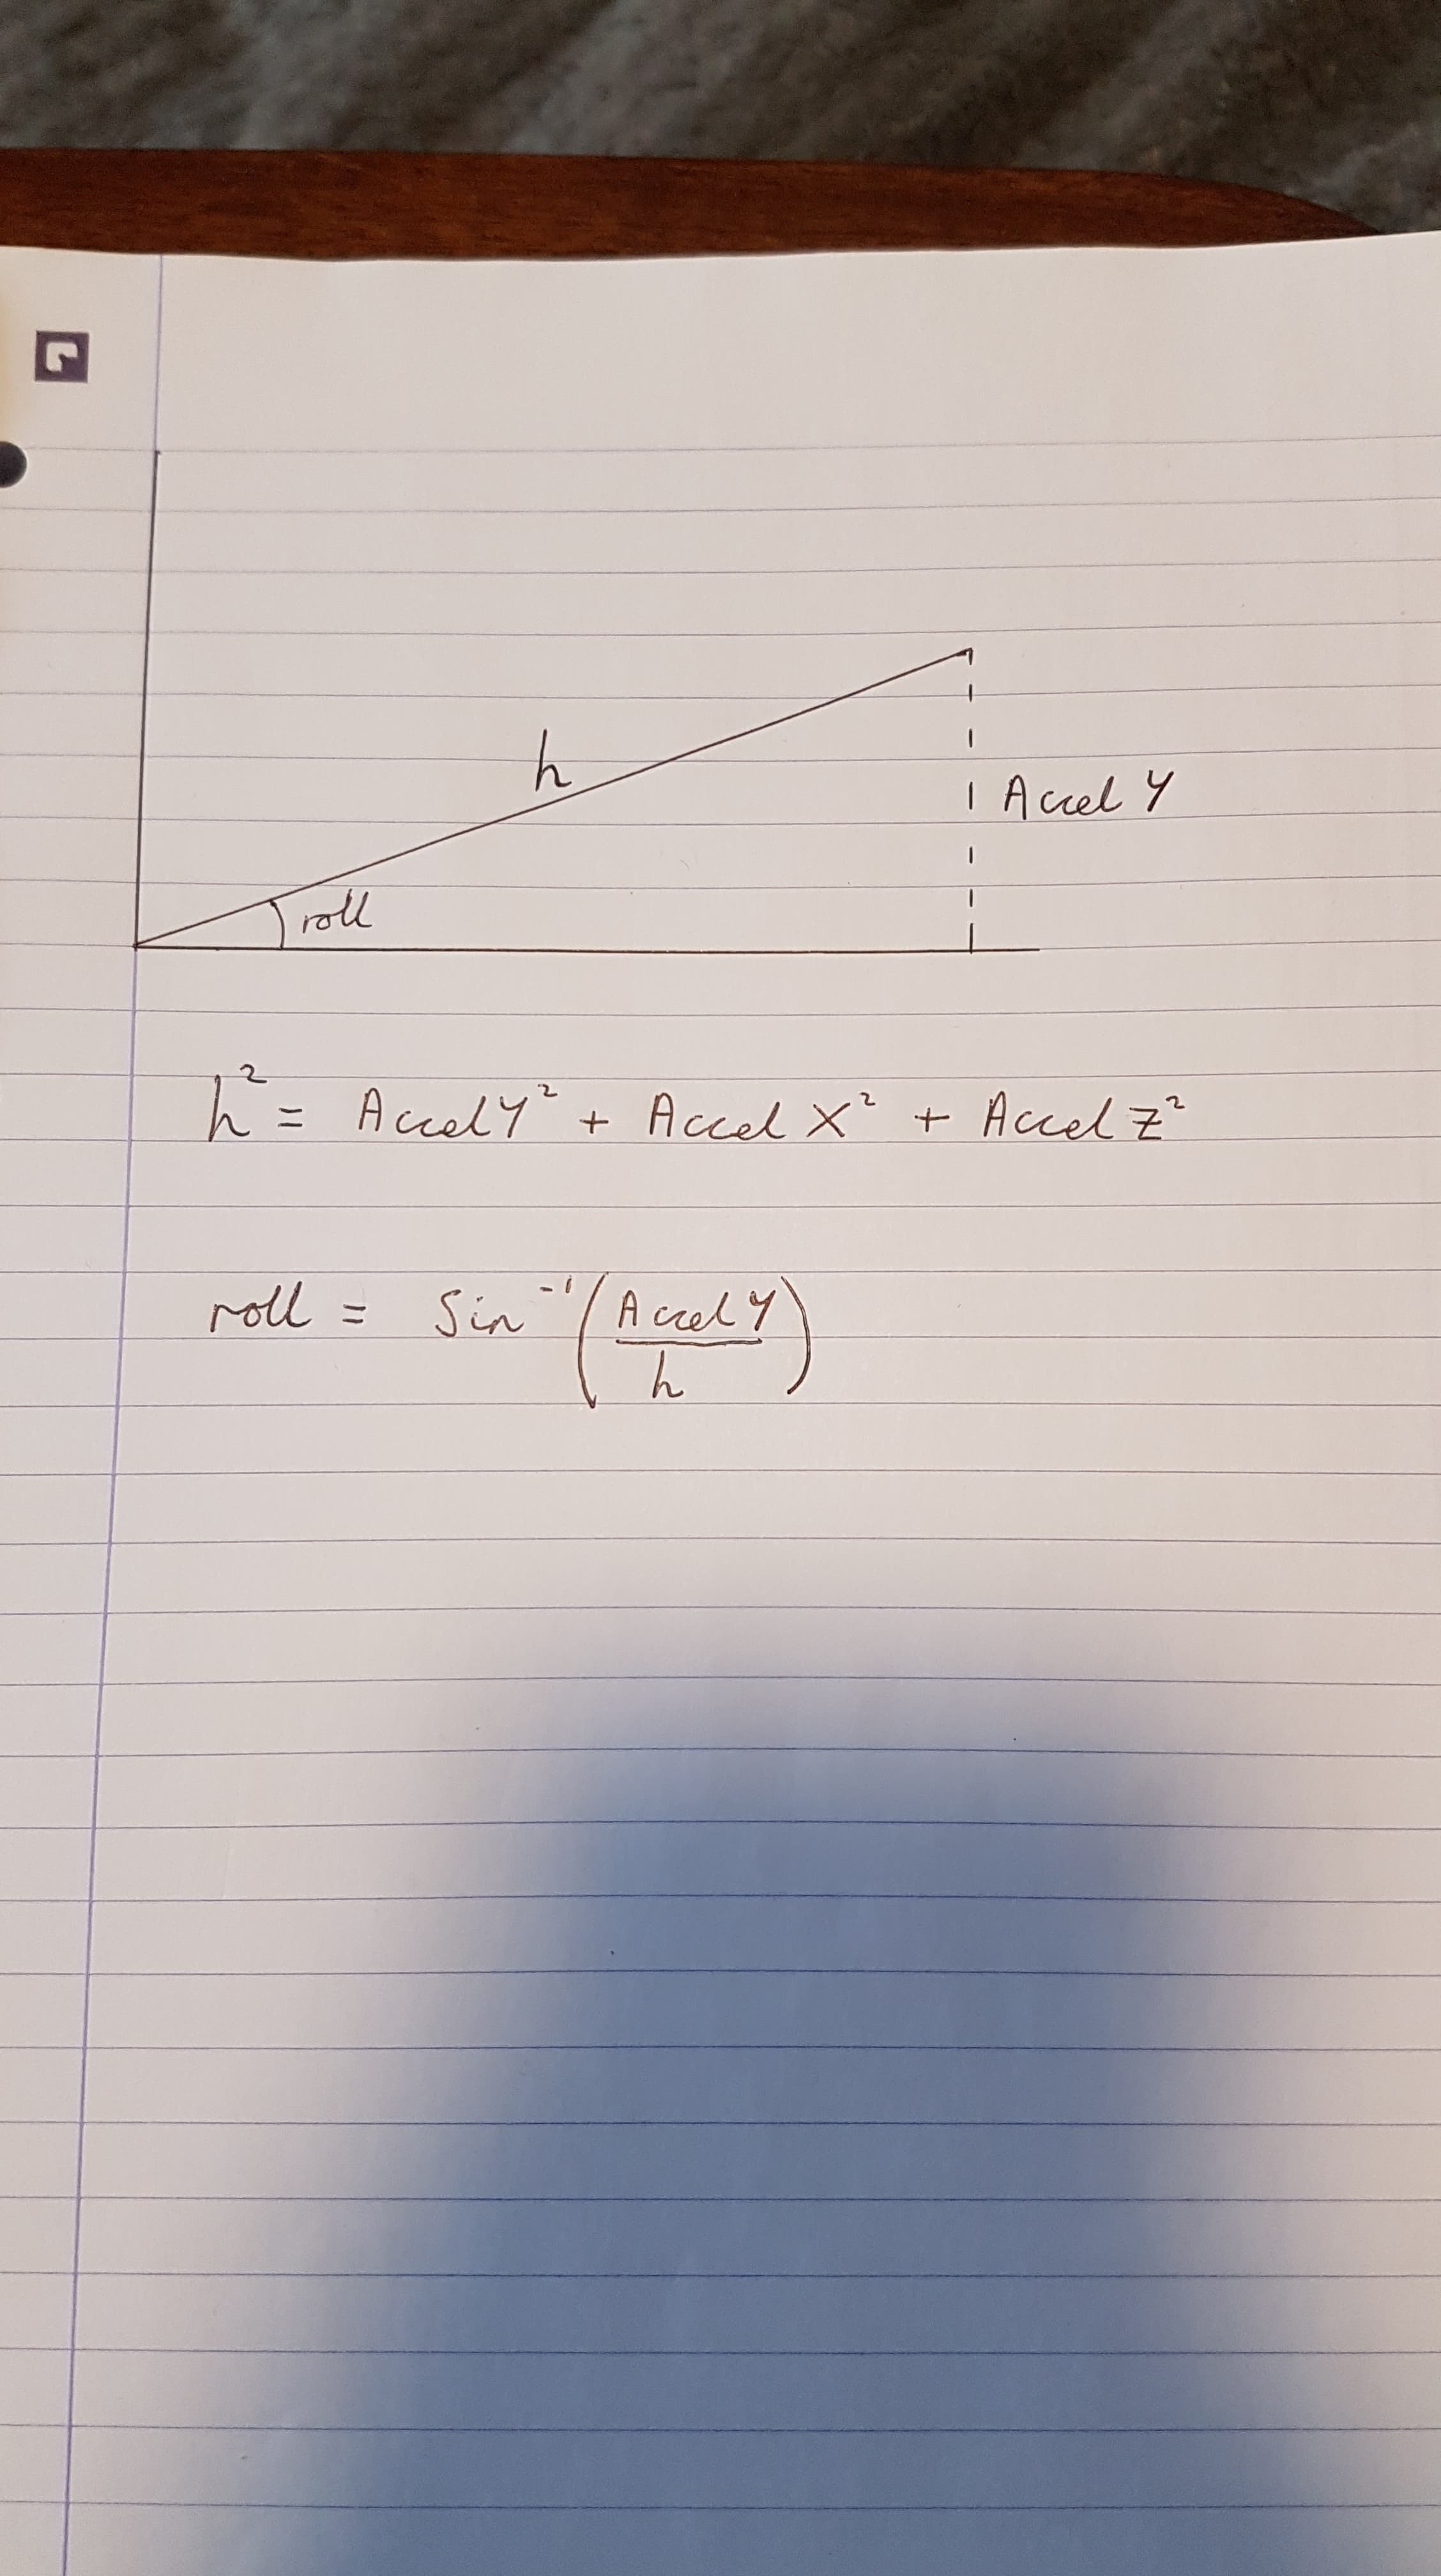 h
Accel Y
roll
h² = Accel Y² + Accel X² + Accel Z²
roll = Sin⁻¹(Accel Y / h)